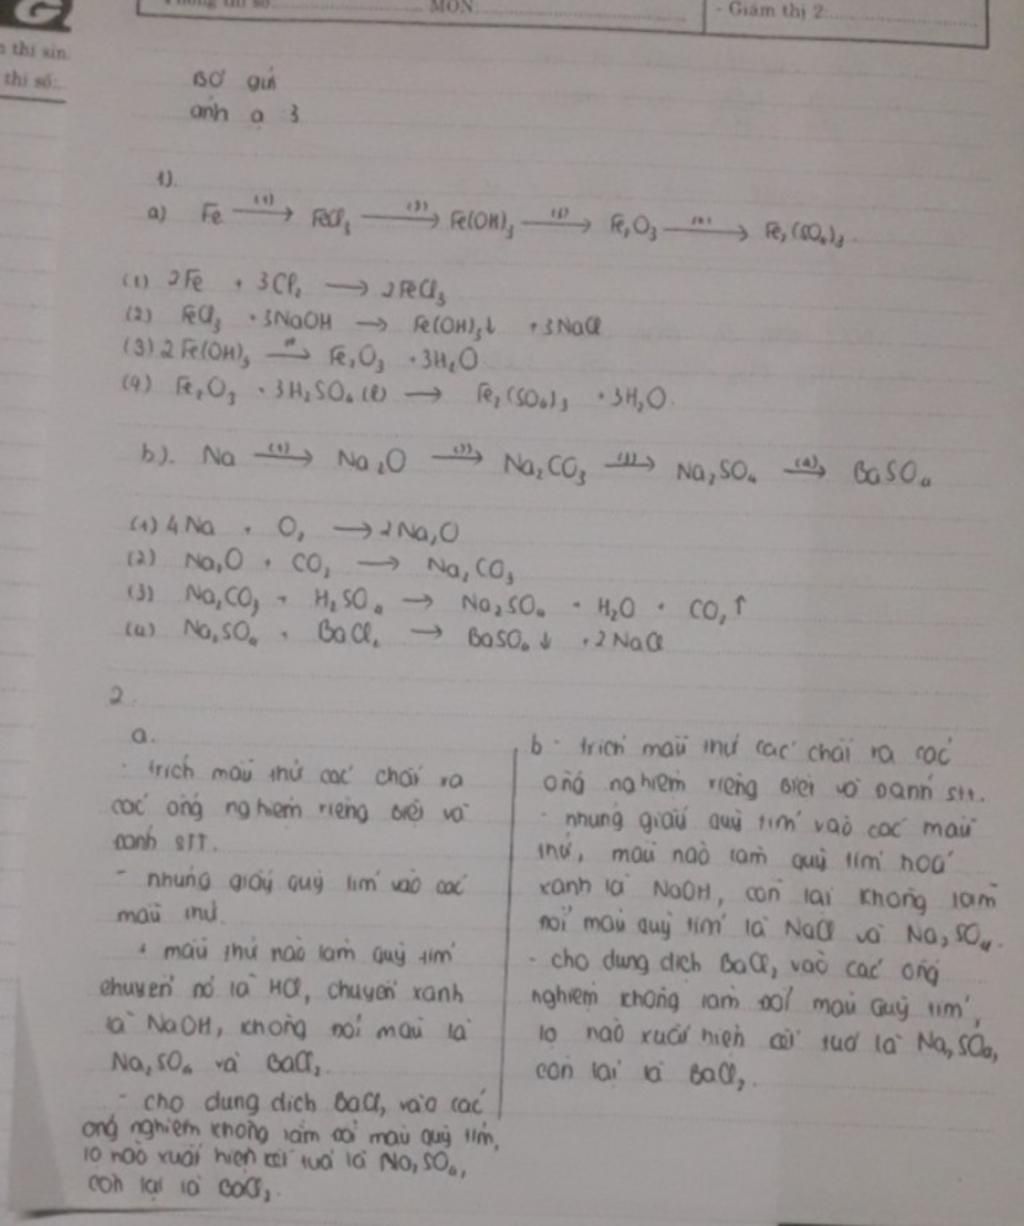 MÔN
- Giám thị 2
thi số:
Bơ gửi
anh ạ :3
1).
a) Fe (1)→ FeCl₃ (2)→ Fe(OH)₃ (3)→ Fe₂O₃ (4)→ Fe₂(SO₄)₃.
(1) 2Fe + 3Cl₂ → 2FeCl₃
(2) FeCl₃ + 3NaOH → Fe(OH)₃↓ + 3NaCl
(3) 2Fe(OH)₃ t°→ Fe₂O₃ + 3H₂O
(4) Fe₂O₃ + 3H₂SO₄(l) → Fe₂(SO₄)₃ + 3H₂O.
b). Na (1)→ Na₂O (2)→ Na₂CO₃ (3)→ Na₂SO₄ (4)→ BaSO₄
(1) 4Na + O₂ → 2Na₂O
(2) Na₂O + CO₂ → Na₂CO₃
(3) Na₂CO₃ + H₂SO₄ → Na₂SO₄ + H₂O + CO₂↑
(4) Na₂SO₄ + BaCl₂ → BaSO₄↓ + 2NaCl
2.
a.
- trích mẫu thử các chất ra
các ống nghiệm riêng biệt và
đánh STT.
- nhúng giấy quỳ tím vào các
mẫu thử.
+ mẫu thử nào làm quỳ tím
chuyển đỏ là HCl, chuyển xanh
là NaOH, không đổi màu là
Na₂SO₄ và BaCl₂
- cho dung dịch BaCl₂ vào các
ống nghiệm không làm đổi màu quỳ tím,
lọ nào xuất hiện kết tủa là Na₂SO₄,
còn lại là BaCl₂.
b - trích mẫu thử các chất ra các
ống nghiệm riêng biệt và đánh stt.
- nhúng giấy quỳ tím vào các mẫu
thử, mẫu nào làm quỳ tím hoá
xanh là NaOH, còn lại không làm
đổi màu quỳ tím là NaCl và Na₂SO₄.
- cho dung dịch BaCl₂ vào các ống
nghiệm không làm đổi màu quỳ tím,
lọ nào xuất hiện kết tủa là Na₂SO₄,
còn lại là BaCl₂.